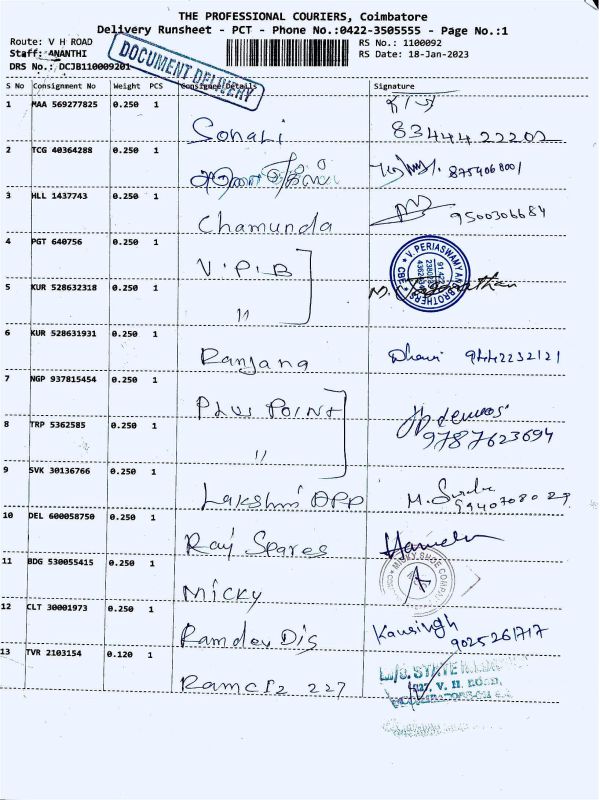 THE PROFESSIONAL COURIERS, Coimbatore
Delivery Runsheet - PCT - Phone No.:0422-3505555 - Page No.:1
Route: V H ROAD
RS No.: 1100092
Staff: ANANTHI
RS Date: 18-Jan-2023
DRS No.: DCJB110009201
DOCUMENT DELIVERY
S No Consignment No Weight PCS Consignee Details Signature
1 MAA 569277825 0.250 1 Sonali 8344422202
2 TCG 40364288 0.250 1 8754068001
3 HLL 1437743 0.250 1 Chamunda 9500306684
4 PGT 640756 0.250 1 V.P.I.B
V. PERIASWAMY AND BROTHERS
5 KUR 528632318 0.250 1 "
6 KUR 528631931 0.250 1 Ranjana 9442232121
7 NGP 937815454 0.250 1 Plus Point
8 TRP 5362585 0.250 1 " 9787623694
9 SVK 30136766 0.250 1 Lakshmi OPP M.
10 DEL 600058750 0.250 1 Raj Spares
11 BDG 530055415 0.250 1 Micky
MICKY SHOE COMPANY
12 CLT 30001973 0.250 1 Ramdev Dis Kausingh
9025261717
13 TVR 2103154 0.120 1 Ramciz 227
V. H. ROAD,